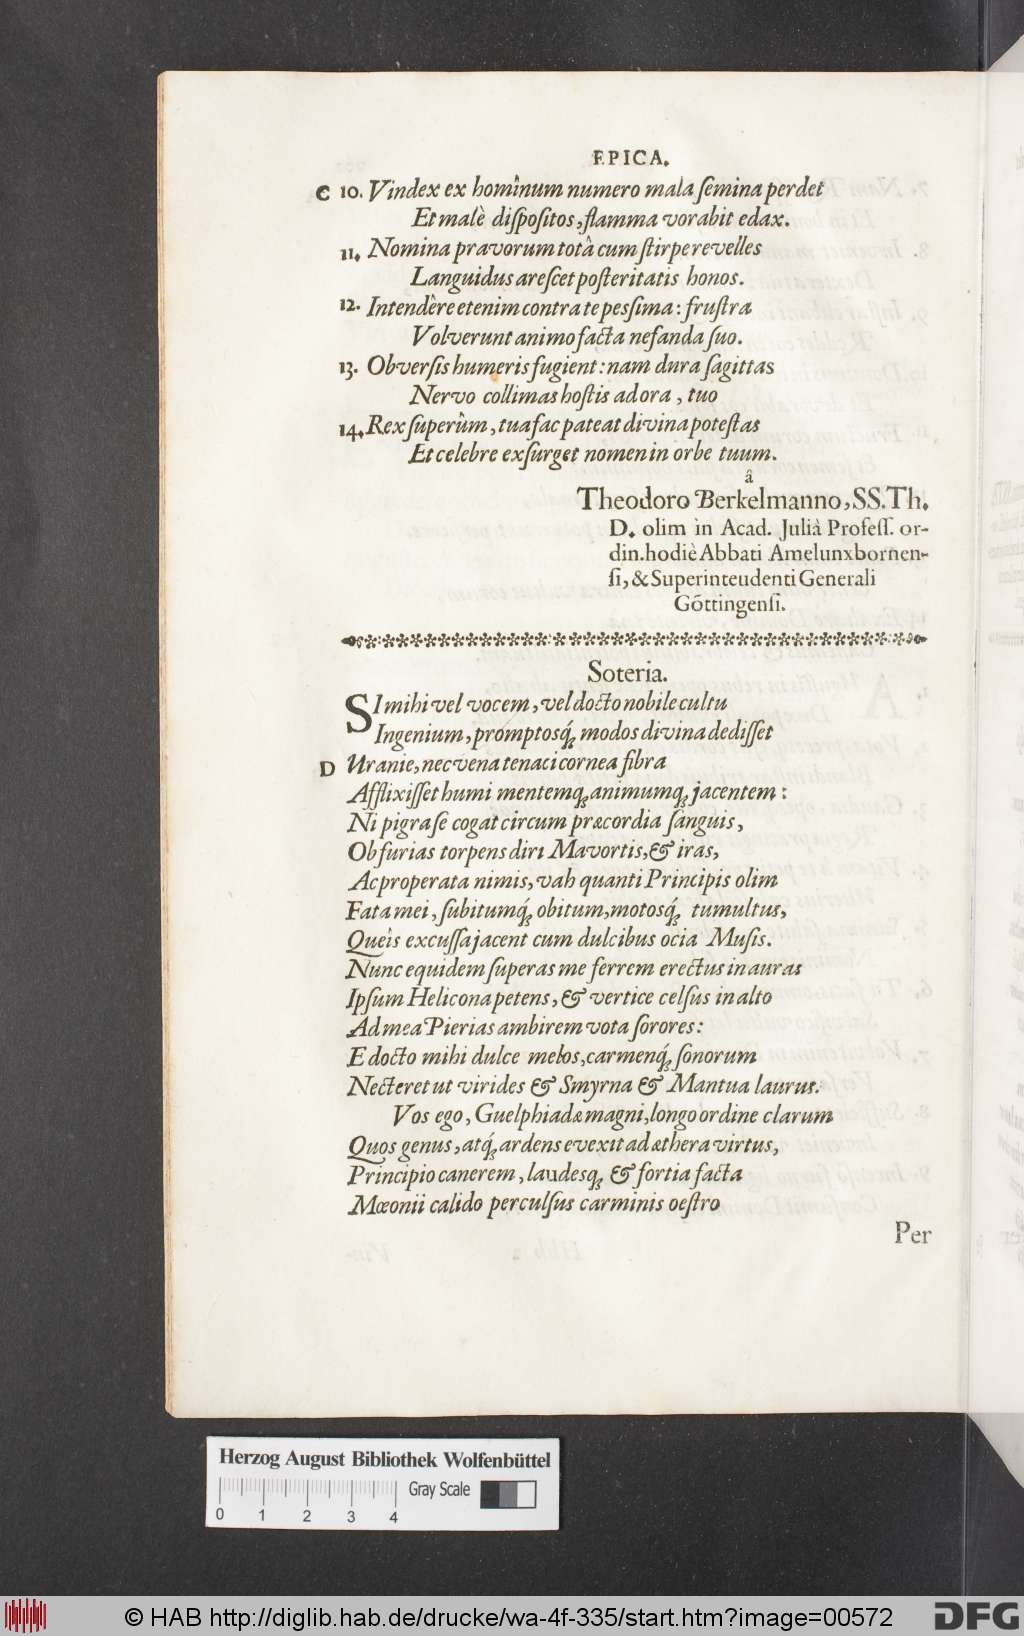 EPICA.
C 10. Vindex ex homînum numero mala ſemina perdet
Et malè diſpoſitos, flamma vorabit edax.
11. Nomina pravorum totâ cum ſtirpe revelles
Languidus areſcet poſteritatis honos.
12. Intendêre etenim contra te peſsima: fruſtra
Volverunt animo facta nefanda ſuo.
13. Obverſis humeris fugient: nam dura ſagittas
Nervo collimas hoſtis ad ora, tuo
14. Rex ſuperûm, tua fac pateat divina poteſtas
Et celebre exſurget nomen in orbe tuum.
â
Theodoro Berkelmanno, SS. Th.
D. olim in Acad. Juliâ Profeſſ. or-
din. hodiè Abbati Amelunxbornen-
ſi, & Superinteudenti Generali
Gõttingenſi.
Soteria.
SI mihi vel vocem, vel docto nobile cultu
Ingenium, promptosq́; modos divina dediſſet
D Uranie, nec vena tenaci cornea fibra
Afflixiſſet humi mentemq; animumq; jacentem:
Ni pigra ſe cogat circum præcordia ſanguis,
Ob furias torpens diri Mavortis, & iras,
Ac properata nimis, vah quanti Principis olim
Fata mei, ſubitumq́; obitum, motosq́; tumultus,
Queîs excuſſa jacent cum dulcibus ocia Muſis.
Nunc equidem ſuperas me ferrem erectus in auras
Ipſum Helicona petens, & vertice celſus in alto
Ad mea Pierias ambirem vota ſorores:
E docto mihi dulce melos, carmenq́; ſonorum
Necteret ut virides & Smyrna & Mantua laurus.
Vos ego, Guelphiadæ magni, longo ordine clarum
Quos genus, atq́; ardens evexit ad æthera virtus,
Principio canerem, laudesq; & fortia facta
Mœonii calido perculſus carminis oeſtro
Per
Herzog August Bibliothek Wolfenbüttel
Gray Scale
0 1 2 3 4
© HAB http://diglib.hab.de/drucke/wa-4f-335/start.htm?image=00572
DFG